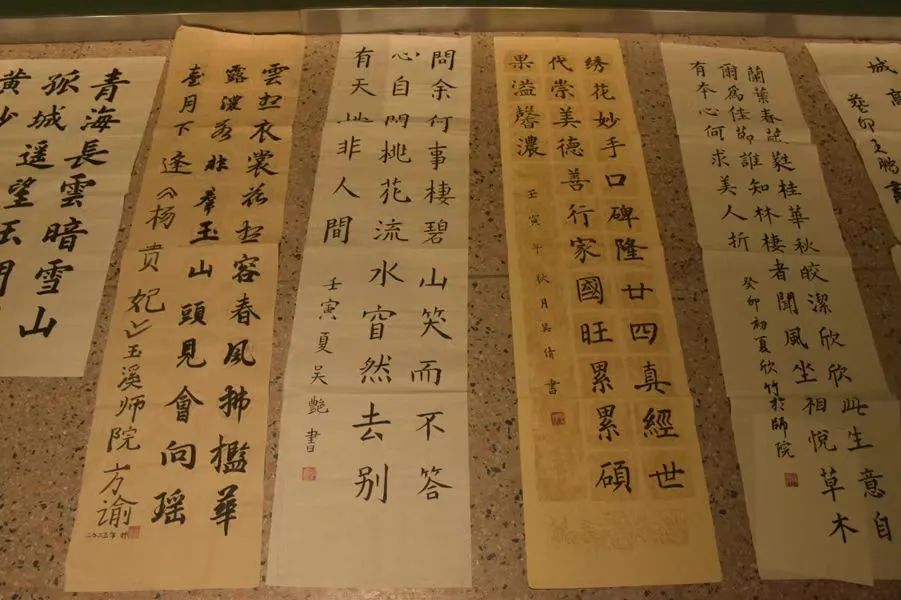 青海長雲暗雪山
孤城遥望玉門
黄沙
雲想衣裳花想容春風拂檻華
露濃若非羣玉山頭見會向瑶
臺月下逢《杨贵妃》玉溪师院方谕
問余何事棲碧山笑而不答
心自閒桃花流水窅然去别
有天地非人間 壬寅夏吴艷書
绣花妙手口碑隆廿四真經世
代崇美德善行家國旺累累碩
果溢馨濃 壬寅年秋月吴倩書
蘭葉春葳蕤桂華秋皎潔欣欣此生意自
爾爲佳節誰知林棲者聞風坐相悅草木
有本心何求美人折 癸卯初夏欣竹於師院
城高
癸卯王鵬書